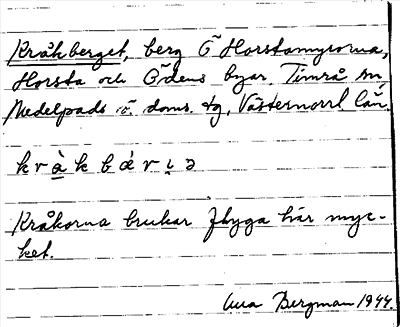 Kråkberget, berg Ö Horstamyrorna,
Horsta och Ödens byar. Timrå sn,
Medelpads ö. doms. tg, Västernorrl. län.
k r å̀ k b ǽ r ι ə
Kråkorna brukar flyga här myc-
ket.
Bergman 1944.